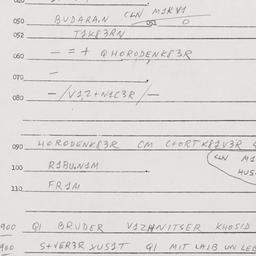 050 BUDARAN CLN M1RV1
052 T1K83RN 051 0
060 - = + QHORODENK83R
070 -
080 -/V1Z+N1C3R/-
090 HORODENK83R CM C+ORTK81V3R
CLN M1
100 R1BUN1M HUS
110 FR1M
900 Q1 BRUDER V1ZHNITSER KHOSID
S+VER3R XUS1T Q1 MIT LAIB UN LEB